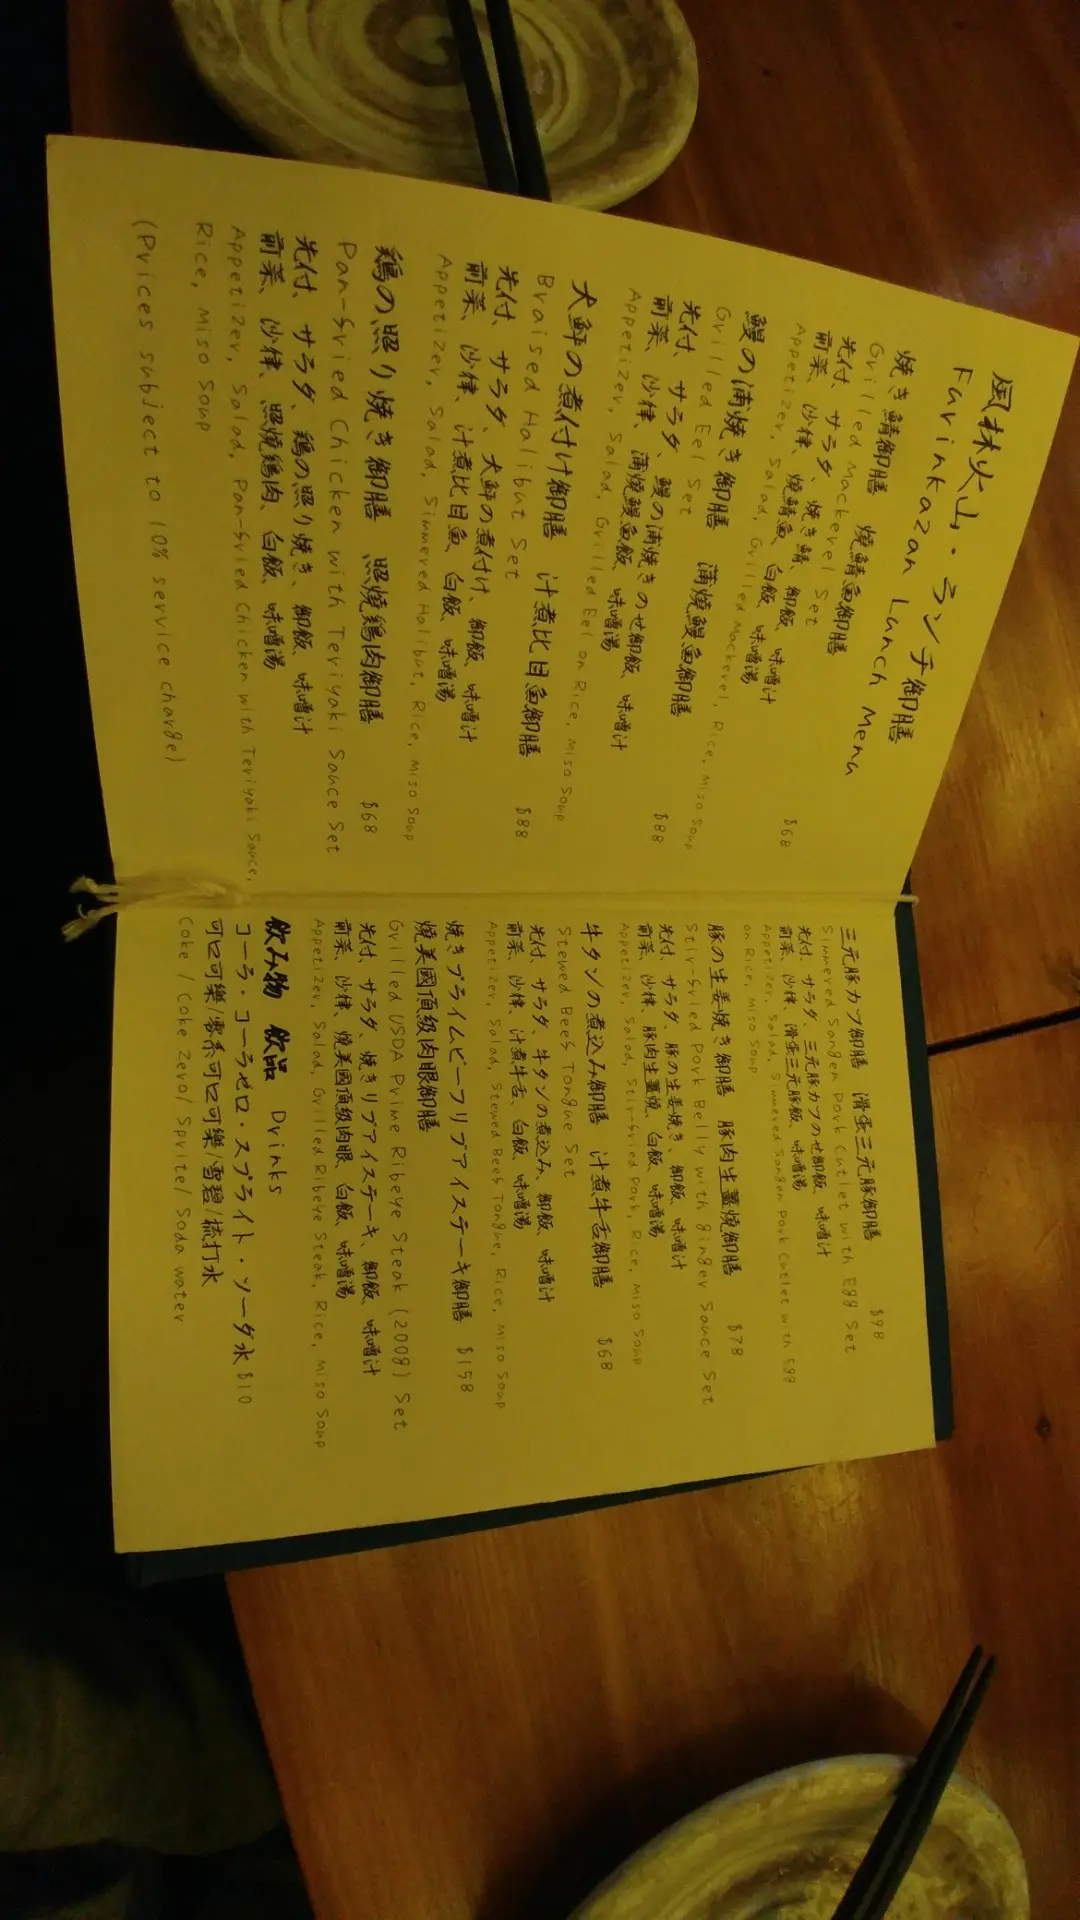 風林火山・ランチ御膳
Furinkazan Lunch Menu
焼き鯖御膳 燒鯖魚御膳 $68
Grilled Mackerel Set
先付、サラダ、焼き鯖、御飯、味噌汁
前菜、沙律、燒鯖魚、白飯、味噌湯
Appetizer, Salad, Grilled Mackerel, Rice, Miso Soup
鰻の蒲焼き御膳 蒲燒鰻魚御膳 $88
Grilled Eel Set
先付、サラダ、鰻の蒲焼きのせ御飯、味噌汁
前菜、沙律、蒲燒鰻魚飯、味噌湯
Appetizer, Salad, Grilled Eel on Rice, Miso Soup
大鮃の煮付け御膳 汁煮比目魚御膳 $88
Braised Halibut Set
先付、サラダ、大鮃の煮付け、御飯、味噌汁
前菜、沙律、汁煮比目魚、白飯、味噌湯
Appetizer, Salad, Simmered Halibut, Rice, Miso Soup
鶏の照り焼き御膳 照燒鶏肉御膳 $68
Pan-fried Chicken with Teriyaki Sauce Set
先付、サラダ、鶏の照り焼き、御飯、味噌汁
前菜、沙律、照燒鶏肉、白飯、味噌湯
Appetizer, Salad, Pan-fried Chicken with Teriyaki Sauce,
Rice, Miso Soup
(Prices subject to 10% service charge)
三元豚カツ御膳 滑蛋三元豚御膳 $98
Simmered Sangen Pork Cutlet with Egg Set
先付、サラダ、三元豚カツのせ御飯、味噌汁
前菜、沙律、滑蛋三元豚飯、味噌湯
Appetizer, Salad, Simmered Sangen Pork Cutlet with Egg
on Rice, Miso Soup
豚の生姜焼き御膳 豚肉生薑燒御膳 $78
Stir-fried Pork Belly with Ginger Sauce Set
先付、サラダ、豚の生姜焼き、御飯、味噌汁
前菜、沙律、豚肉生薑燒、白飯、味噌湯
Appetizer, Salad, Stir-fried Pork, Rice, Miso Soup
牛タンの煮込み御膳 汁煮牛舌御膳 $68
Stewed Beef Tongue Set
先付、サラダ、牛タンの煮込み、御飯、味噌汁
前菜、沙律、汁煮牛舌、白飯、味噌湯
Appetizer, Salad, Stewed Beef Tongue, Rice, Miso Soup
焼きプライムビーフリブアイステーキ御膳 $158
燒美國頂級肉眼御膳
Grilled USDA Prime Ribeye Steak (200g) Set
先付、サラダ、焼きリブアイステーキ、御飯、味噌汁
前菜、沙律、燒美國頂級肉眼、白飯、味噌湯
Appetizer, Salad, Grilled Ribeye Steak, Rice, Miso Soup
飲み物 飲品 Drinks
コーラ・コーラゼロ・スプライト・ソーダ水 $10
可口可樂/零系可口可樂/雪碧/梳打水
Coke / Coke Zero/ Sprite/ Soda water